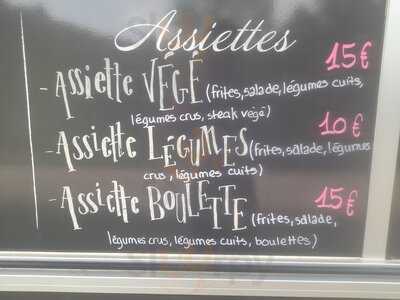 Assiettes
15€
- Assiette VÉGÉ (frites, salade, légumes cuits,
légumes crus, steak végé)
10€
- Assiette LÉGUMES (frites, salade, légumes
crus, légumes cuits)
15€
- Assiette BOULETTE (frites, salade,
légumes crus, légumes cuits, boulettes)